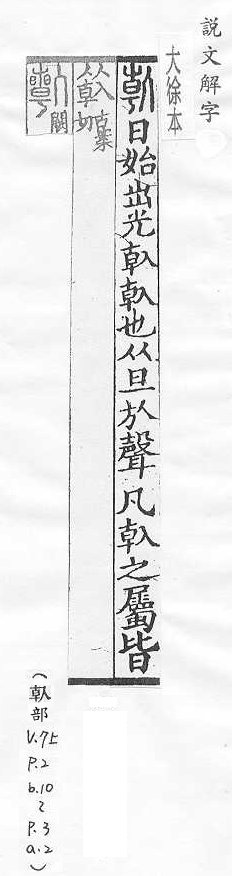 說文解字
大徐本
倝日始出光倝倝也从旦㫃聲凡倝之屬皆
从倝 古案切
闕
(倝部
V.7上
P.2
b.10
~
P.3
a.2)